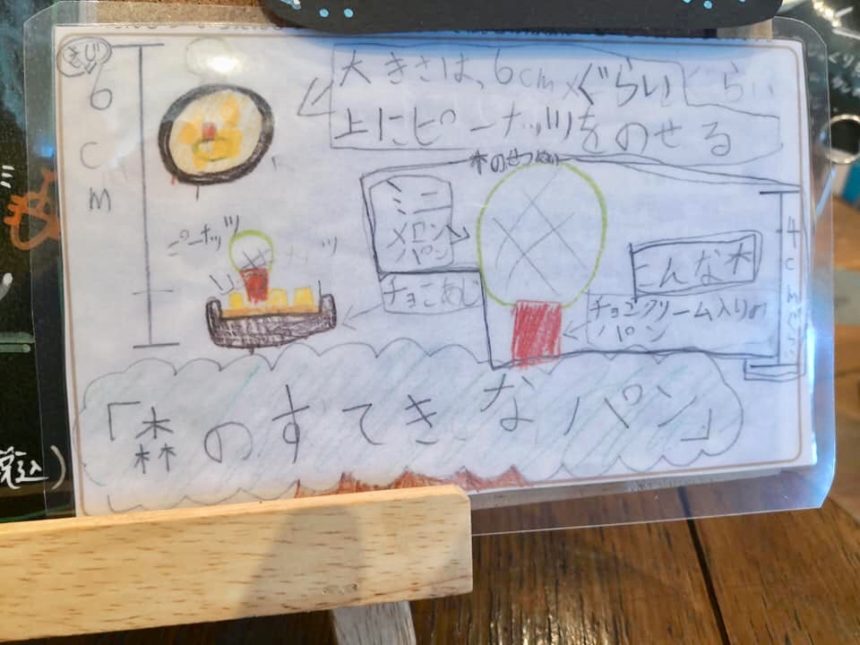 6cm
大きさは、6cmぐらい
上にピーナッツをのせる
木のせつめい
ミニ
メロン
パン
ピーナッツ
チョコあじ
4cm
こんな木
チョコクリーム入りの
パン
「森のすてきなパン」
税込)